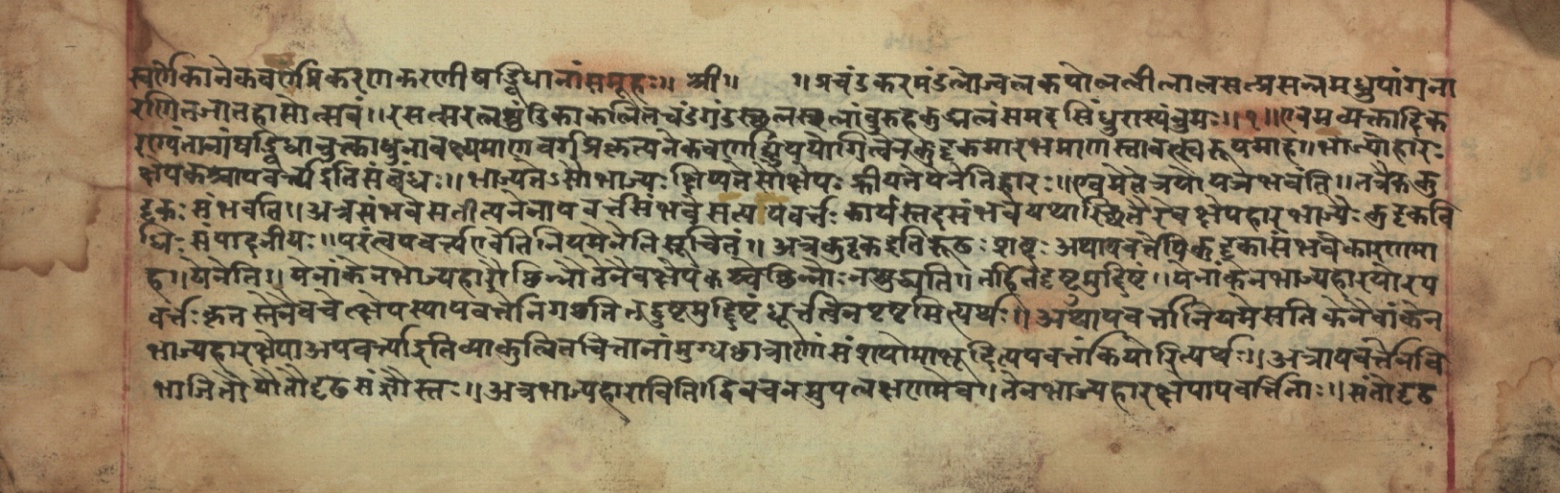 स्वर्णेकानेकवर्णमिकरणकरणीषड्विधानां समूहः॥ श्री॥ ॥प्रचंडकरमंडलोज्वलकपोललीलालसत्प्रसन्नमधुपांगना
रणितजातहासोत्सवं॥ रसत्सरलशुंडिकाकलितचंडगंडस्थूलस्थलांबुरुहकुड्मलं समदसिंधुरास्यं नुमः॥१॥ एवमव्यक्तादिक
रण्यंतानां षड्विधाचुत्काधुनावक्ष्यमाणवर्गप्रकृत्यनेकवर्णाद्युपयोगित्वेनकुट्टकमारभमाणस्तावत्स्वरूपमाह॥ भाज्योहारः
क्षेपकश्चापवर्त्त्यइतिसंबंधः॥ भाज्यतेऽसौभाज्यः क्षिप्यतेसौक्षेपः ह्रीयतेयनेतिहारः॥ एवमेतेत्रयोयत्रभवंति॥ तत्रैकक्रु
ट्टकः संभवति॥ अत्रसंभवेसतीत्यनेनापवर्त्तसंभवेसत्यपवर्त्तः कार्यस्तदसंभवेयथास्थितैरेवक्षेपहारभाज्यैः कुट्टकवि
धिः संपादनीयः॥ परंत्वपवर्त्त्यएवेतिनियमेनेतिसूचितं॥ अत्रकुट्टकइतिरूढः शब्दः अथापवर्त्तेपिकुट्टकासंभवेकारणमा
ह॥ येनेति॥ येनांकेनभाज्यहारौछिन्नौतेनैवक्षेपकश्चेच्छिन्नोःनशुद्ध्यति॥ तर्हितदुष्टमुद्दिष्टं॥ येनांकेनभाज्यहारयोरप
वर्त्तः कृतस्तेनैवचेत्क्षेपस्यापवर्त्तेनिगच्छतितद्दुष्टमुद्दिष्टं धूर्त्तत्वेनपृष्टमित्यर्थः॥ अथापवर्त्तनियमेसतिकेनैवांकेन
भाज्यहारक्षेपाअपवर्त्त्याइतिव्याकुलितचित्तानांमुग्धछात्राणां संशयोमाभूदित्यपवर्त्तांकियोरित्यर्थः॥ अत्रापवर्त्तेनवि
भाजितौयौतौदृढसंज्ञौस्तः॥ अत्रभाज्यहारावितिद्विवचनमुपलक्षणमेव॥ तेनभाज्यहारक्षेपापवर्त्तिताः॥ संतोदृढ